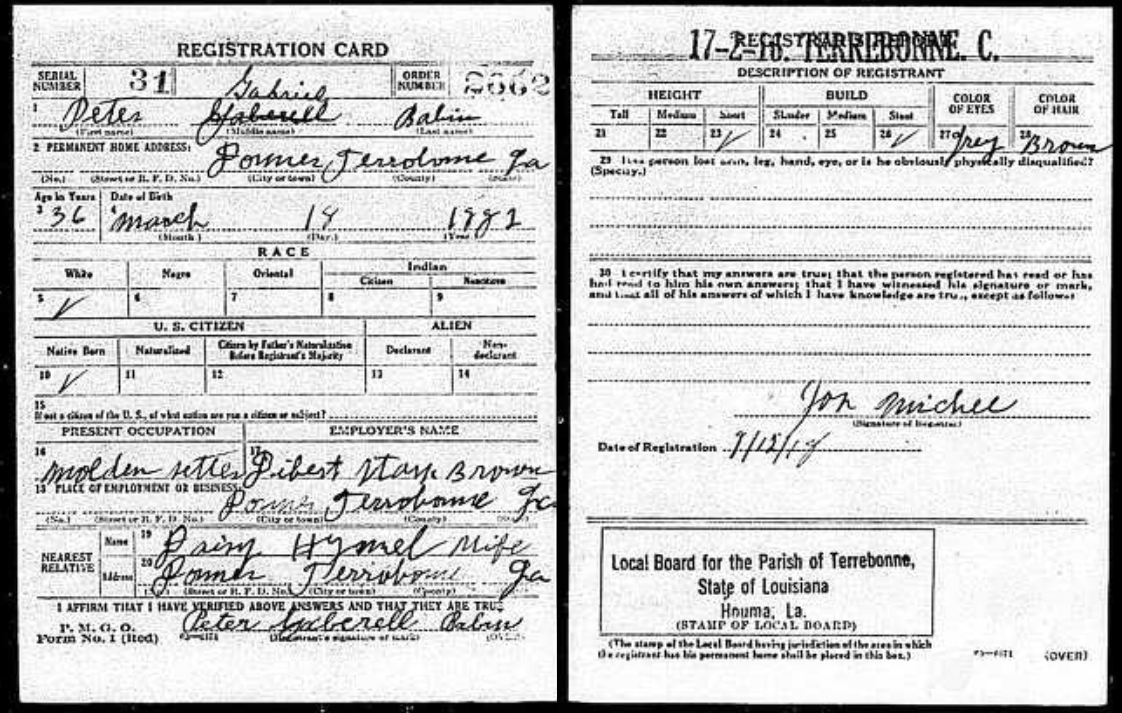 REGISTRATION CARD
SERIAL NUMBER 31 Gabriel ORDER NUMBER
1 Peter Gaberell Babin
(First name) (Middle name) (Last name)
2 PERMANENT HOME ADDRESS: Terrobonne La
(No.) (Street or R. F. D. No.) (City or town) (County) (State)
Age in Years Date of Birth
3 36 4 March 18 1882
(Month.) (Day.) (Year.)
RACE
White Negro Oriental Indian
Citizen Noncitizen
5 ✓ 6 7 8 9
U. S. CITIZEN ALIEN
Native Born Naturalized Citizen by Father's Naturalization Before Registrant's Majority Declarant Non-declarant
10 ✓ 11 12 13 14
15
If not a citizen of the U. S., of what nation are you a citizen or subject?
PRESENT OCCUPATION EMPLOYER'S NAME
16 molden setter 17 Dibert Brown
18 PLACE OF EMPLOYMENT OR BUSINESS: Terrobonne La
(No.) (Street or R. F. D. No.) (City or town) (County) (State)
NEAREST RELATIVE Name 19 Daisy Hymel Wife
Address 20 Terrobonne La
(No.) (Street or R. F. D. No.) (City or town) (County)
I AFFIRM THAT I HAVE VERIFIED ABOVE ANSWERS AND THAT THEY ARE TRUE
P. M. G. O.
Form No. 1 (Red) 03—6171 Peter Gaberell Babin
(Registrant's signature or mark) (OVER)
REGISTRAR'S REPORT
17-2-16. TERREBONNE. C.
DESCRIPTION OF REGISTRANT
HEIGHT BUILD COLOR OF EYES COLOR OF HAIR
Tall Medium Short Slender Medium Stout
21 22 23 ✓ 24 25 26 ✓ 27 Grey 28 Brown
29 Has person lost arm, leg, hand, eye, or is he obviously physically disqualified?
(Specify.)
30 I certify that my answers are true; that the person registered has read or has
had read to him his own answers; that I have witnessed his signature or mark,
and that all of his answers of which I have knowledge are true, except as follows:
Jos Michel
(Signature of Registrar)
Date of Registration 9/12/18
Local Board for the Parish of Terrebonne,
State of Louisiana
Houma, La.
(STAMP OF LOCAL BOARD)
(The stamp of the Local Board having jurisdiction of the area in which
the registrant has his permanent home shall be placed in this box.)
03—6171 (OVER)